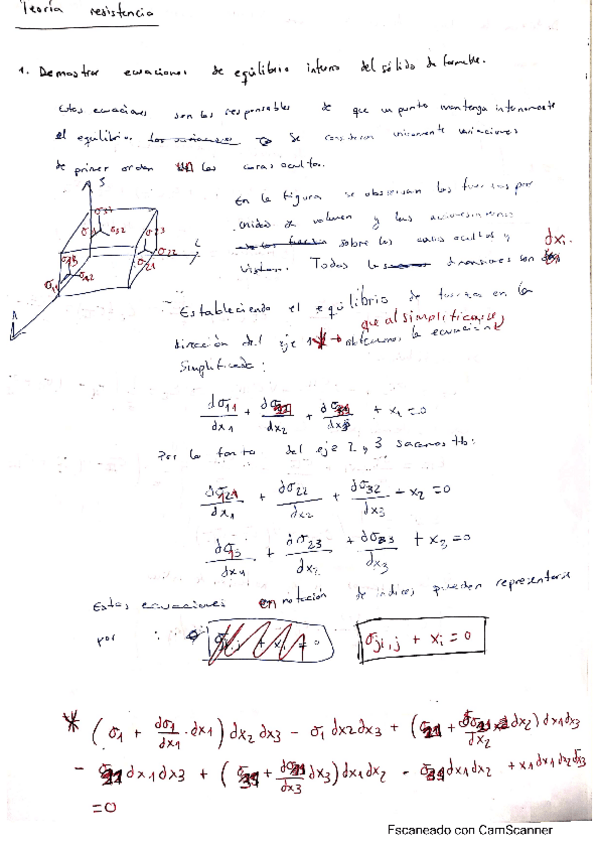 Teoría resistencia
1. Demostrar ecuaciones de equilibrio interno del sólido deformable.
Estas ecuaciones son las responsables de que un punto mantenga internamente
el equilibrio. Se consideran unicamente variaciones
de primer orden en las caras ocultas.
En la figura se observan las fuerzas por
unidad de volumen y las
sobre las caras ocultas y
vistas. Todas las dimensiones son dxi.
Estableciendo el equilibrio de fuerzas en la
dirección del eje 1 * → que al simplificarse, obtenemos la ecuación
simplificada:
dσ11/dx1 + dσ21/dx2 + dσ31/dx3 + x1 = 0
Por lo tanto del eje 2 y 3 sacamos tb:
dσ12/dx1 + dσ22/dx2 + dσ32/dx3 + x2 = 0
dσ13/dx1 + dσ23/dx2 + dσ33/dx3 + x3 = 0
Estas ecuaciones en notación de indices pueden representarse
por : σji,j + xi = 0
* (σ1 + dσ1/dx1 · dx1) dx2 dx3 - σ1 dx2 dx3 + (σ21 + dσ21/dx2 dx2) dx1 dx3
- σ21 dx1 dx3 + (σ31 + dσ31/dx3 dx3) dx1 dx2 - σ31 dx1 dx2 + x1 dx1 dx2 dx3
= 0
Escaneado con CamScanner